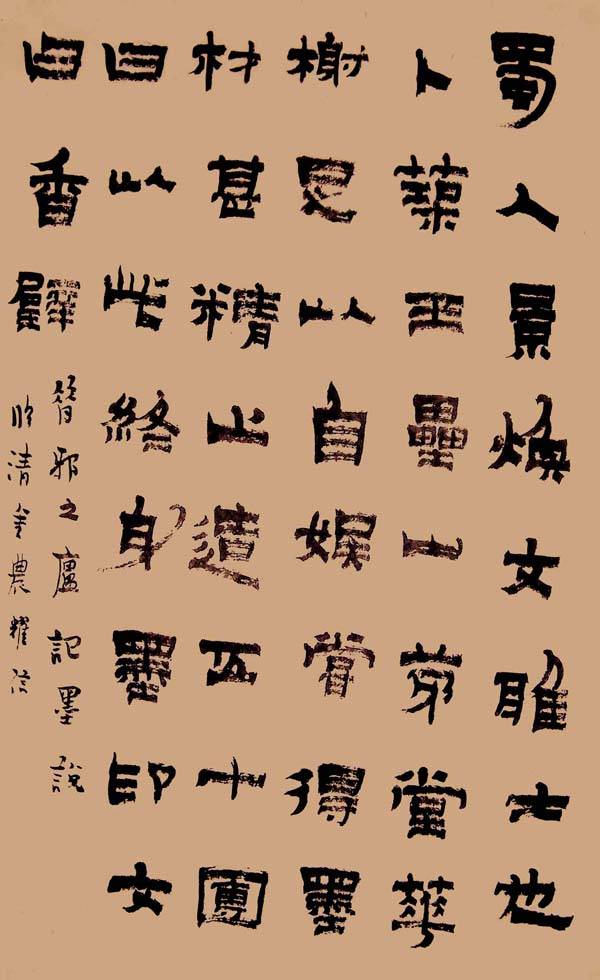 蜀人景煥文雅士也
卜築玉壘山茅堂華
榭足以自娛嘗得墨
材甚精止造五十團
曰以此終身墨印文
曰香璧
昔邪之廬記墨說
臨清金農耀信